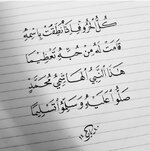 كُلُّ الحُرُوفِ إِذَا نَطَقْتَ بِاسْمِهِ
قَامَتْ لَهُ مِنْ حُبِّهِ تَعْظِيمًا
هَذَا النَّبِيُّ الهَاشِمِيُّ مُحَمَّدٌ
صَلُّوا عَلَيْهِ وَسَلِّمُوا تَسْلِيمًا